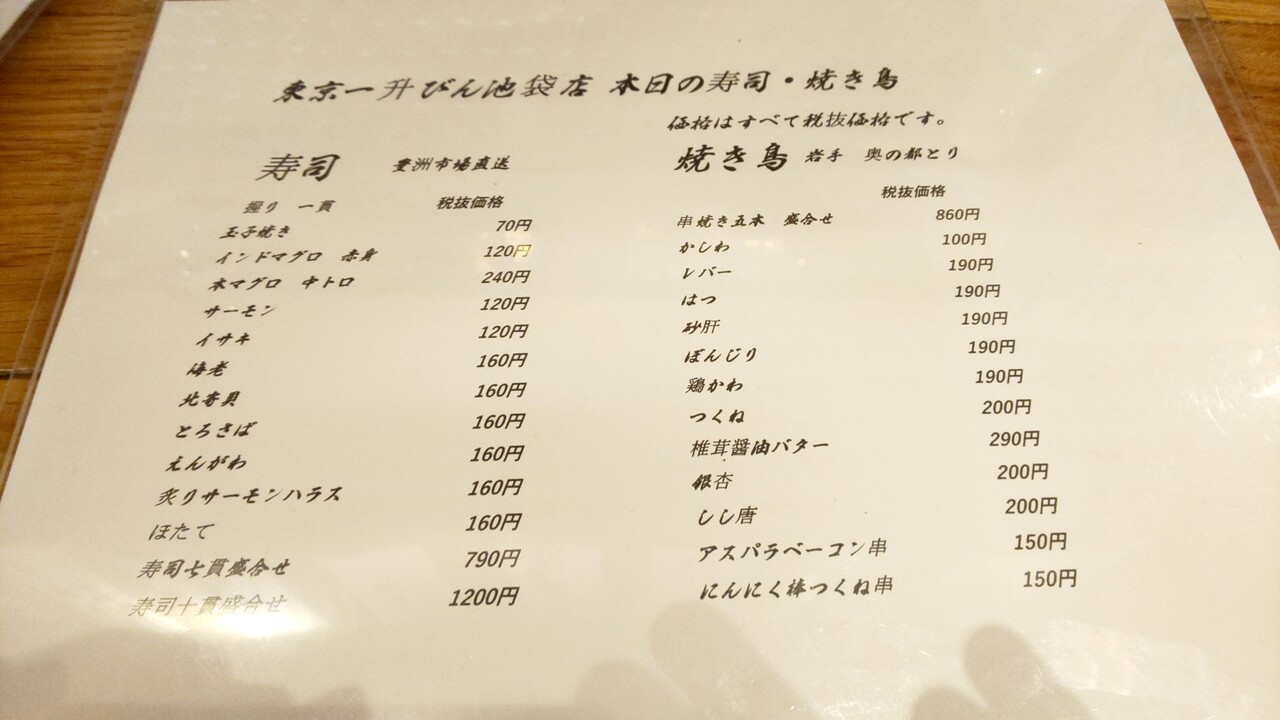 東京一升びん池袋店 本日の寿司・焼き鳥
価格はすべて税抜価格です。
寿司 豊洲市場直送
握り 一貫 税抜価格
玉子焼き 70円
インドマグロ 赤身 120円
本マグロ 中トロ 240円
サーモン 120円
イサキ 120円
海老 160円
北寄貝 160円
とろさば 160円
えんがわ 160円
炙りサーモンハラス 160円
ほたて 160円
寿司七貫盛合せ 790円
寿司十貫盛合せ 1200円
焼き鳥 岩手 奥の都とり
税抜価格
串焼き五本 盛合せ 860円
かしわ 100円
レバー 190円
はつ 190円
砂肝 190円
ぼんじり 190円
鶏かわ 190円
つくね 200円
椎茸醤油バター 290円
銀杏 200円
しし唐 200円
アスパラベーコン串 150円
にんにく棒つくね串 150円